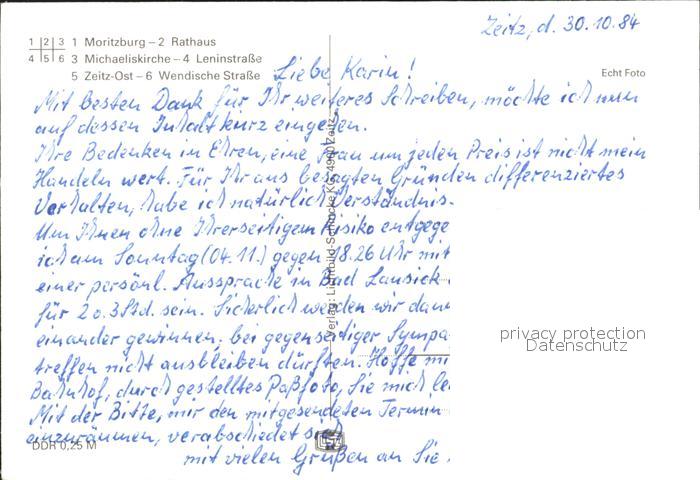 Zeitz, d. 30.10.84
1 2 3 1 Moritzburg – 2 Rathaus
4 5 6 3 Michaeliskirche – 4 Leninstraße
5 Zeitz-Ost – 6 Wendische Straße
Echt Foto
Liebe Karin!
Mit besten Dank für Ihr weiteres Schreiben, möchte ich nun
auf dessen Inhalt kurz eingehen.
Ihre Bedenken in Ehren, eine Frau um jeden Preis ist nicht mein
Handeln wert. Für Ihr aus besagten Gründen differenziertes
Verhalten, habe ich natürlich Verständnis.
Um Ihnen ohne Ihrerseitigem Risiko entgege
ich am Sonntag (04.11.) gegen 18.26 Uhr mit
einer persönl. Aussprache in Bad Lausick
für 2 o. 3 Std. sein. Sicherlich werden wir dann
einander gewinnen, bei gegenseitiger Sympa
treffen nicht ausbleiben dürften. Hoffe mi
Bahnhof, durch gestelltes Paßfoto, Sie mich le
Mit der Bitte, mir den mitgesendeten Termin
einzuräumen, verabschiedet sich
mit vielen Grüßen an Sie.
DDR 0,25 M
Verlag: Lichtbild-Schincke KG, 4900 Zeitz
privacy protection
Datenschutz